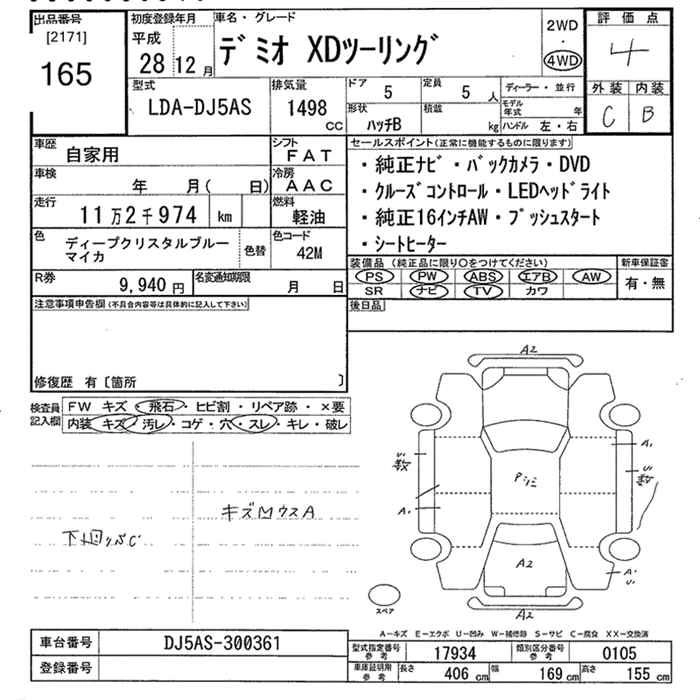 出品番号
[2171]
165
初度登録年月
平成
28 12 月
車名・グレード
デミオ XDツーリング
2WD
・
4WD
評価点
4
外装 内装
C B
型式
LDA-DJ5AS
排気量
1498
CC
ドア 5
定員 5 人
ディーラー・並行
形状
ハッチB
積載
kg
モデル年式 年
ハンドル 左・右
車歴
自家用
シフト
FAT
車検
年 月( 日)
冷房
AAC
走行
11万2千974 km
燃料
軽油
色
ディープクリスタルブルー
マイカ
色替
色コード
42M
R券
9,940 円
名変通知期限
月 日
セールスポイント(正常に機能するものに限ります)
・純正ナビ・バックカメラ・DVD
・クルーズコントロール・LEDヘッドライト
・純正16インチAW・プッシュスタート
・シートヒーター
装備品(純正品に限り○をつけてください)
新車保証書
PS PW ABS エアB AW
SR ナビ TV カワ
有・無
後日品
注意事項申告欄(不具合内容等は具体的に記入して下さい)
修復歴 有〔箇所 〕
検査員
記入欄
FW キズ・飛石・ヒビ割・リペア跡・×要
内装 キズ・汚レ・コゲ・穴・スレ・キレ・破レ
A2
A1
U1
U1
A1
A2
A1
U1
A2
スペア
A-キズ E-エクボ U-凹み W-補修跡 S-サビ C-腐食 XX-交換済
車台番号
DJ5AS-300361
登録番号
型式指定番号
参考
17934
類別区分番号
参考
0105
車庫証明用
参考
長さ 406 cm
幅 169 cm
高さ 155 cm